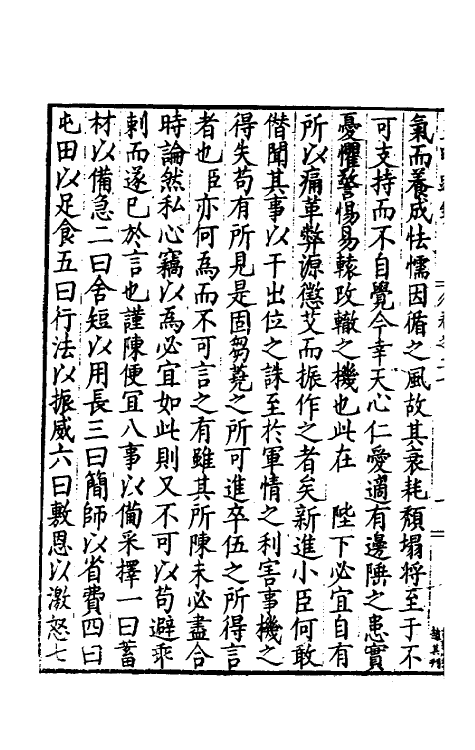 氣而養成怯懦因循之風故其衰耗頹塌將至于不
可支持而不自覺今幸天心仁愛適有邊陲之患實
憂懼警惕易轅改轍之機也此在　陛下必宜自有
所以痛革弊源懲艾而振作之者矣新進小臣何敢
僣聞其事以干出位之誅至於軍情之利害事機之
得失苟有所見是固芻蕘之所可進卒伍之所得言
者也臣亦何為而不可言之有雖其所陳未必盡合
時論然私心竊以為必宜如此則又不可以苟避乖
剌而遂已於言也謹陳便宜八事以備采擇一曰蓄
材以備急二曰舍短以用長三曰簡師以省費四曰
屯田以足食五曰行法以振威六曰敷恩以激怒七